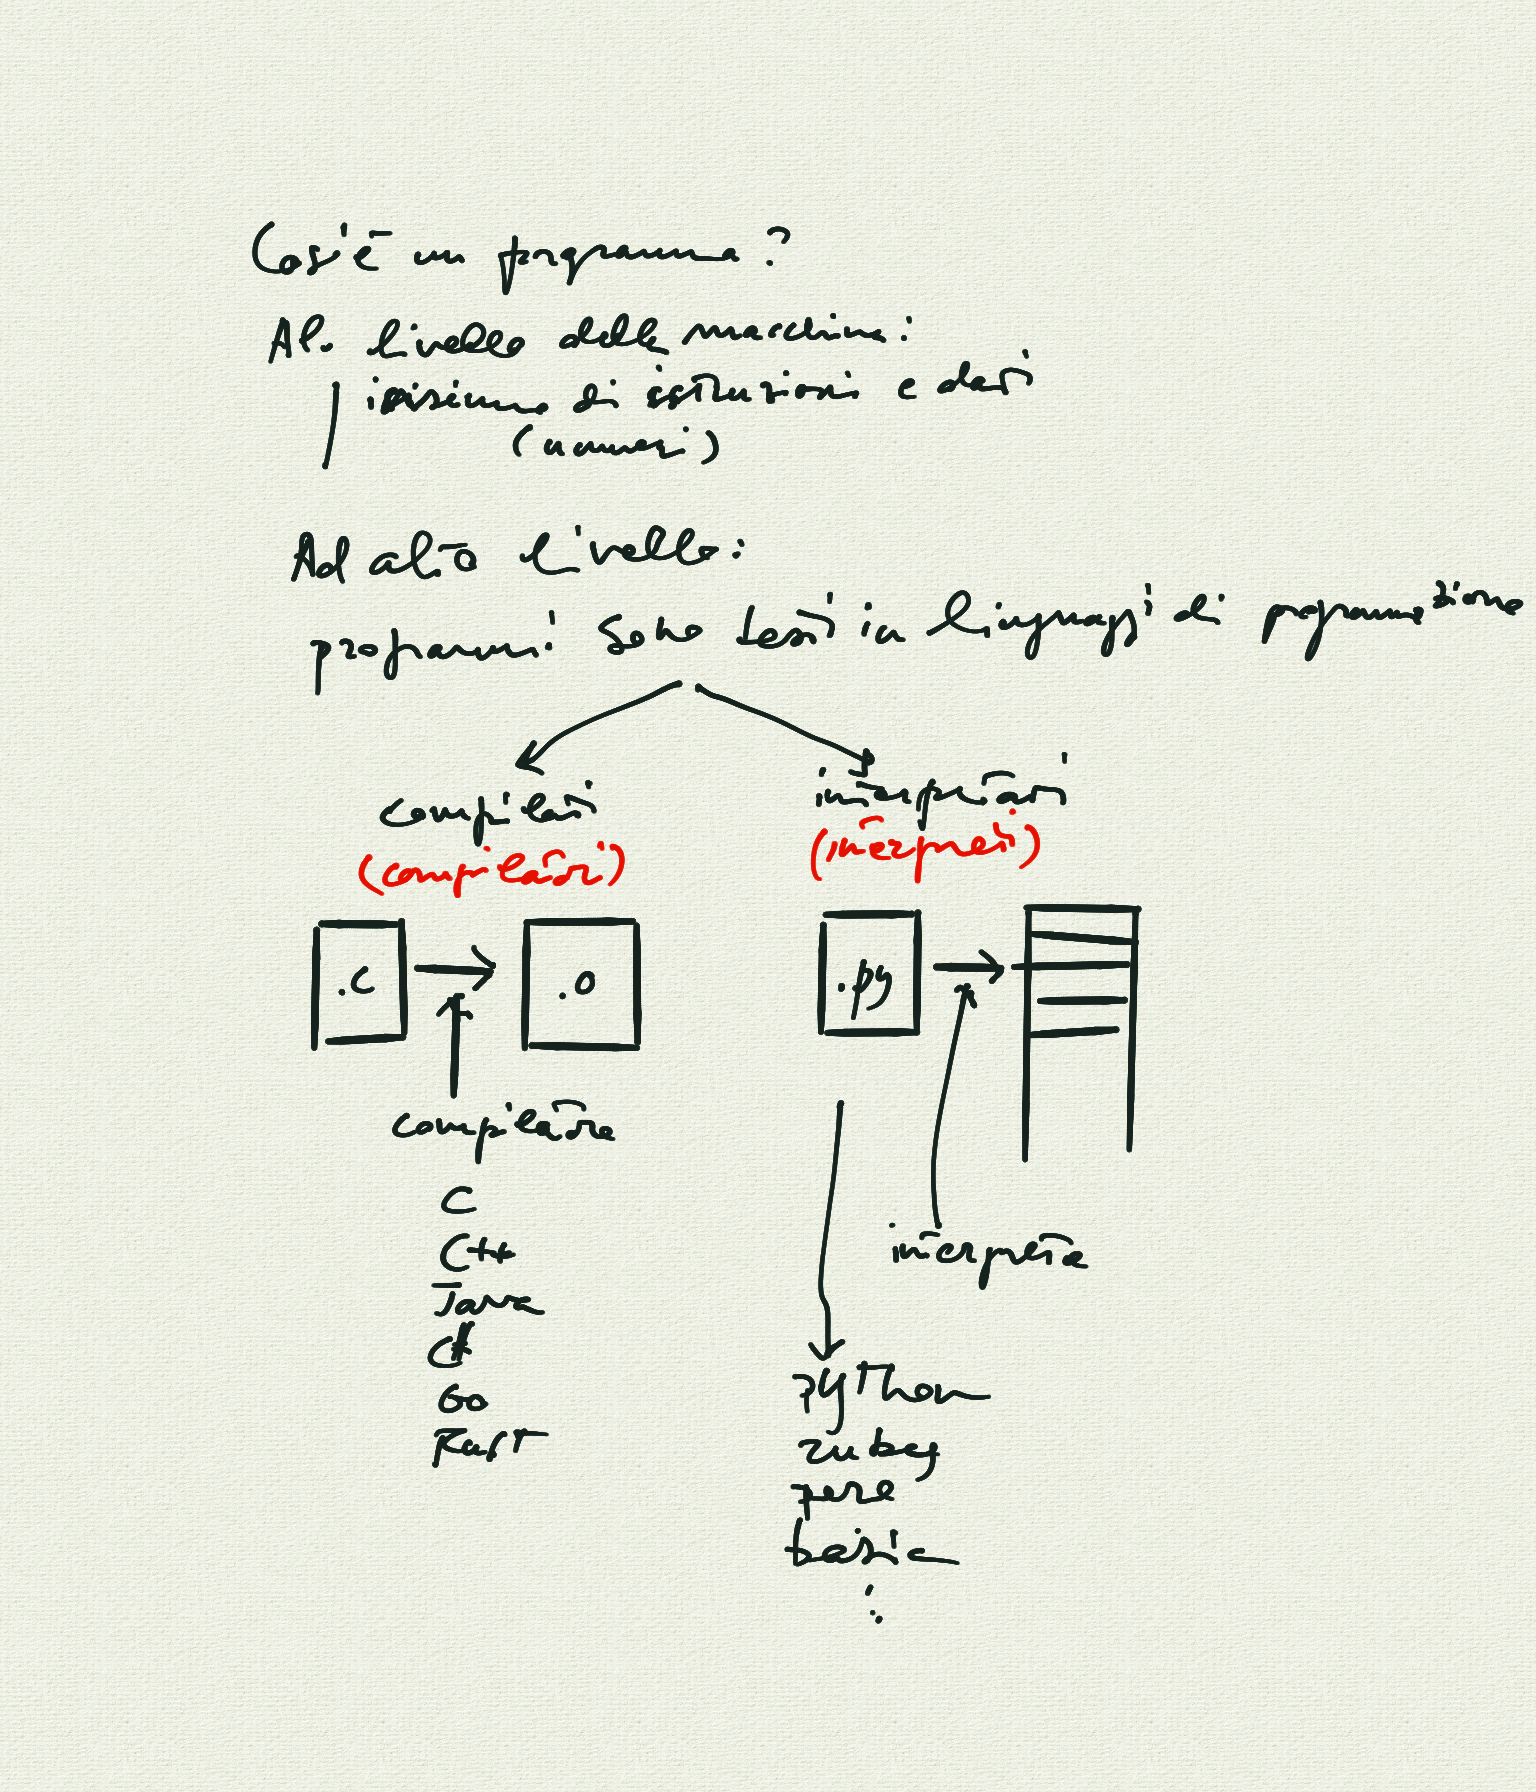 Cos'è un programma?
Al livello della macchina:
insieme di istruzioni e dati
(numeri)
Ad alto livello:
programmi sono testi in linguaggi di programmazione
compilati
interpretati
(compilatori)
(interpreti)
.c
.o
.py
compilatore
interprete
C
C++
Java
C#
Go
Rust
Python
ruby
perl
basic